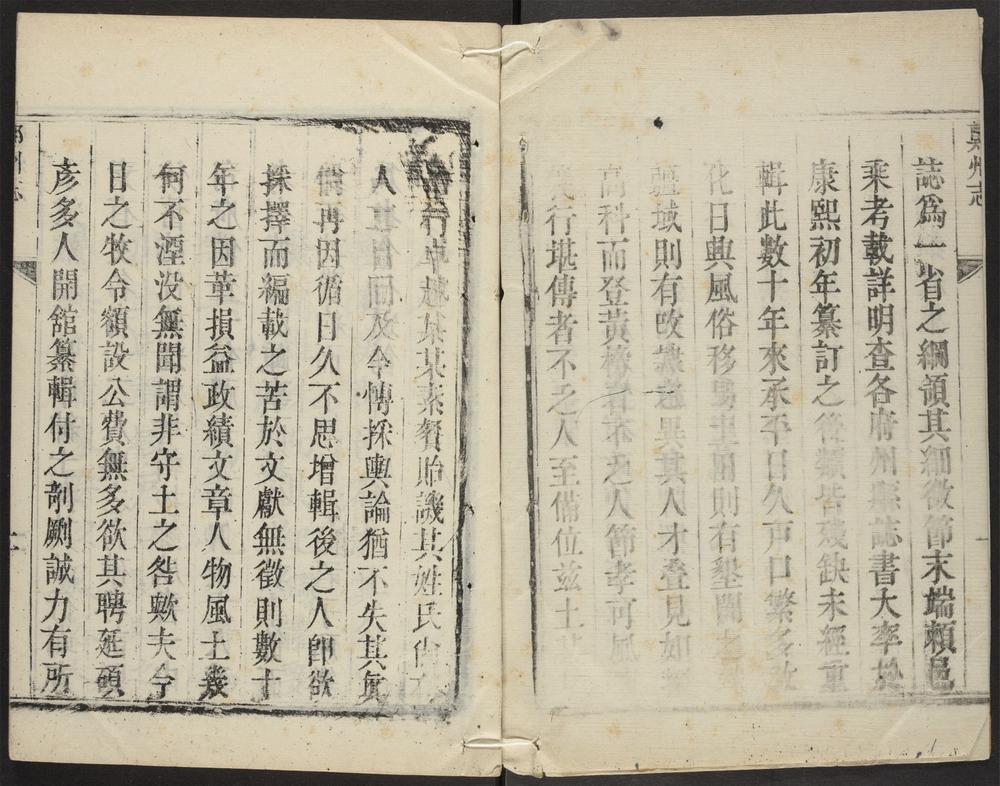 鄭州志
誌爲一省之綱領其細微節末端頼邑
乘考載詳明查各府州縣誌書大率於
康熙初年纂訂之後類皆殘缺未經重
輯此數十年來承平日久戸口繁多政
化日興風俗移易土田則有墾闢之
疆域則有改隸之異其人才叠見如
高科而登黃榜者不乏人節孝可風
行堪傳者不乏人至備位兹土
行卓越某某素餐貽譏其姓氏尚在
人及今愽採輿論猶不失其眞
倘再因循日久不思增輯後之人卽欲
採擇而編載之苦於文獻無徵則數十
年之因革損益政績文章人物風土幾
何不湮没無聞謂非守土之咎歟夫今
日之牧令額設公費無多欲其聘延碩
彥多人開舘纂輯付之剞劂誠力有所
州志